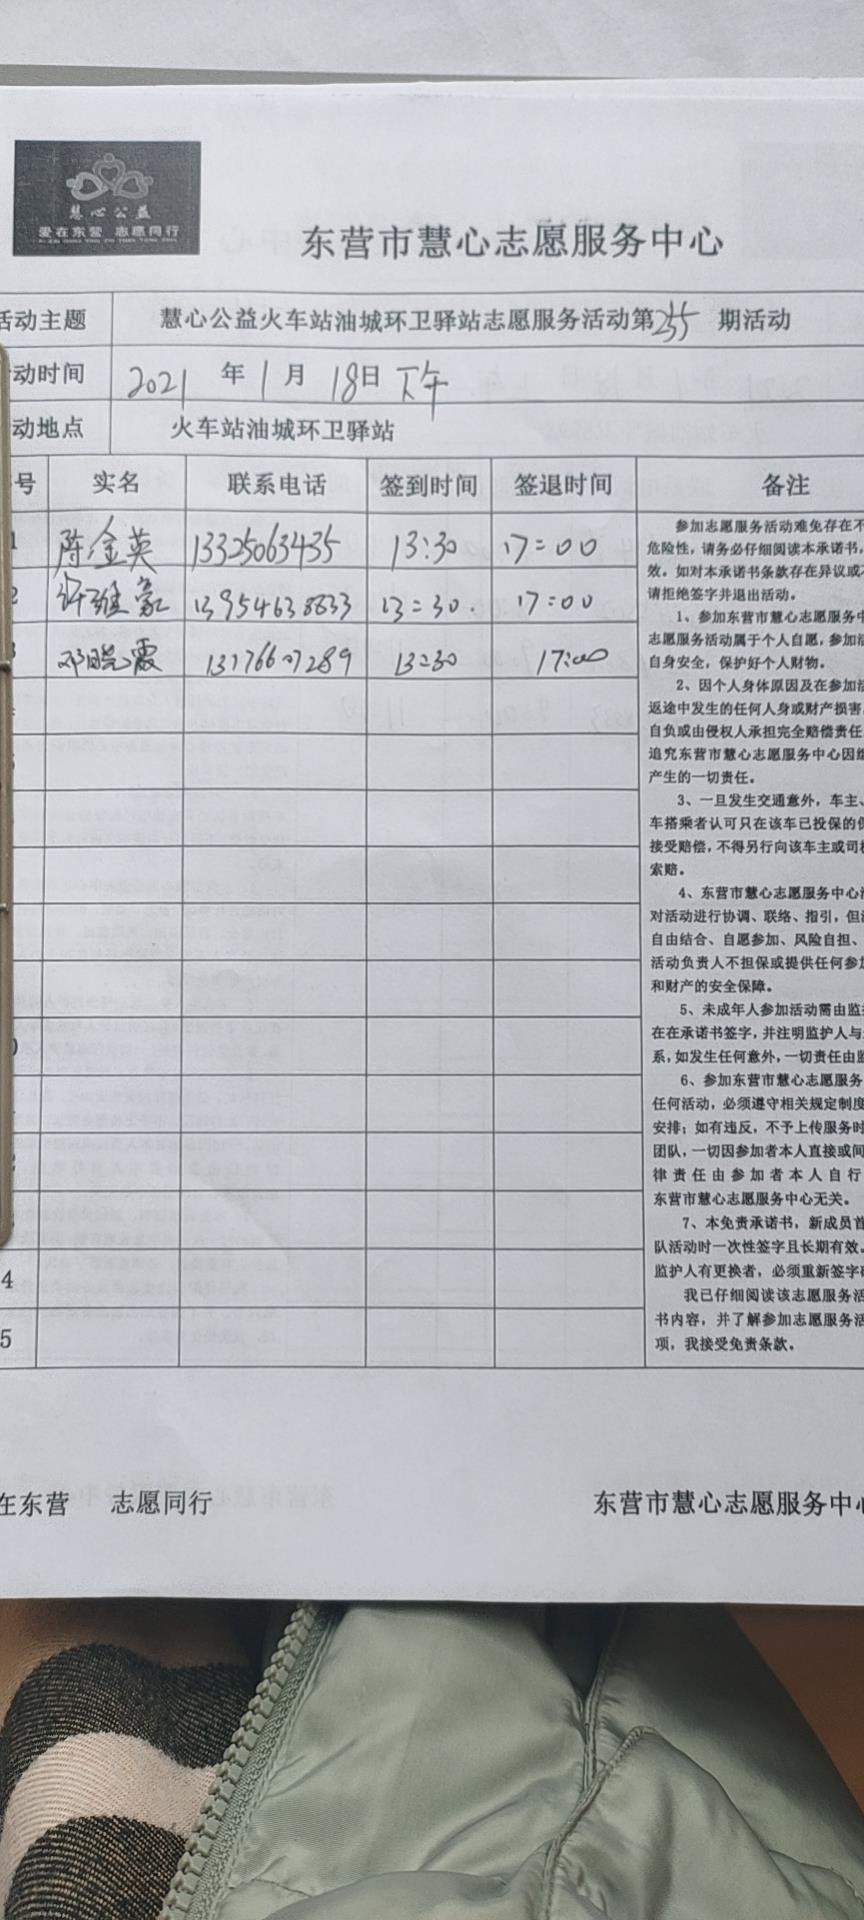 慧心公益
爱在东营 志愿同行
东营市慧心志愿服务中心
活动主题 慧心公益火车站油城环卫驿站志愿服务活动第255期活动
动时间 2021年1月18日下午
动地点 火车站油城环卫驿站
号 实名 联系电话 签到时间 签退时间 备注
1 陈金英 13325063435 13:30 17:00
2 许维豪 13954638833 13:30. 17:00
3 邓晓霞 13176607289 13:30 17:00
4
5
参加志愿服务活动难免存在不
危险性，请务必仔细阅读本承诺书，
效。如对本承诺书条款存在异议或不
请拒绝签字并退出活动。
1、参加东营市慧心志愿服务中
志愿服务活动属于个人自愿，参加活
自身安全，保护好个人财物。
2、因个人身体原因及在参加活
返途中发生的任何人身或财产损害
自负或由侵权人承担完全赔偿责任
追究东营市慧心志愿服务中心因组
产生的一切责任。
3、一旦发生交通意外，车主、
车搭乘者认可只在该车已投保的保
接受赔偿，不得另行向该车主或司机
索赔。
4、东营市慧心志愿服务中心活
对活动进行协调、联络、指引，但活
自由结合、自愿参加、风险自担、
活动负责人不担保或提供任何参加
和财产的安全保障。
5、未成年人参加活动需由监护
在在承诺书签字，并注明监护人与
系，如发生任何意外，一切责任由监
6、参加东营市慧心志愿服务
任何活动，必须遵守相关规定制度
安排；如有违反，不予上传服务时
团队，一切因参加者本人直接或间
律责任由参加者本人自行
东营市慧心志愿服务中心无关。
7、本免责承诺书，新成员首
队活动时一次性签字且长期有效。
监护人有更换者，必须重新签字确
我已仔细阅读该志愿服务活
书内容，并了解参加志愿服务活
项，我接受免责条款。
在东营 志愿同行 东营市慧心志愿服务中心